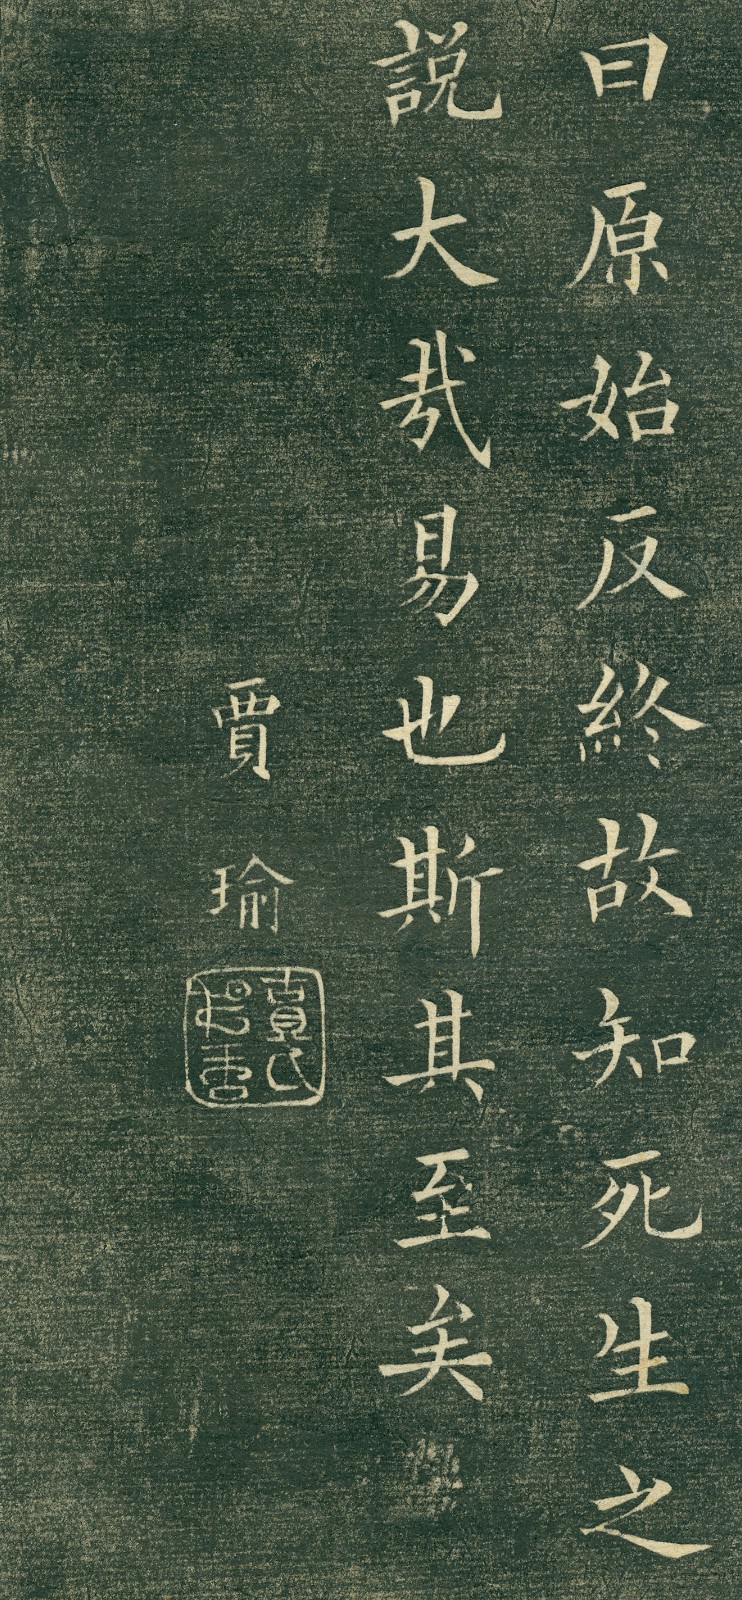 曰原始反終故知死生之
說大哉易也斯其至矣
賈瑜